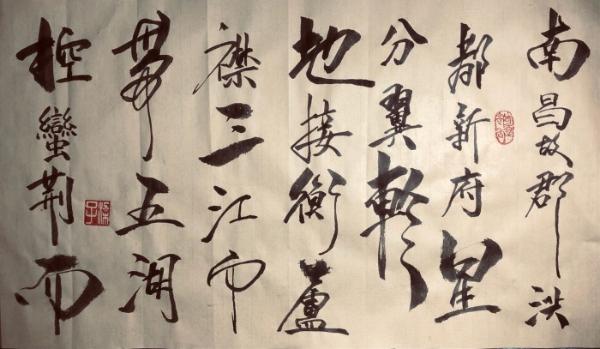 南昌故郡洪
都新府星
分翼軫
地接衡廬
襟三江而
帶五湖
控蠻荊而